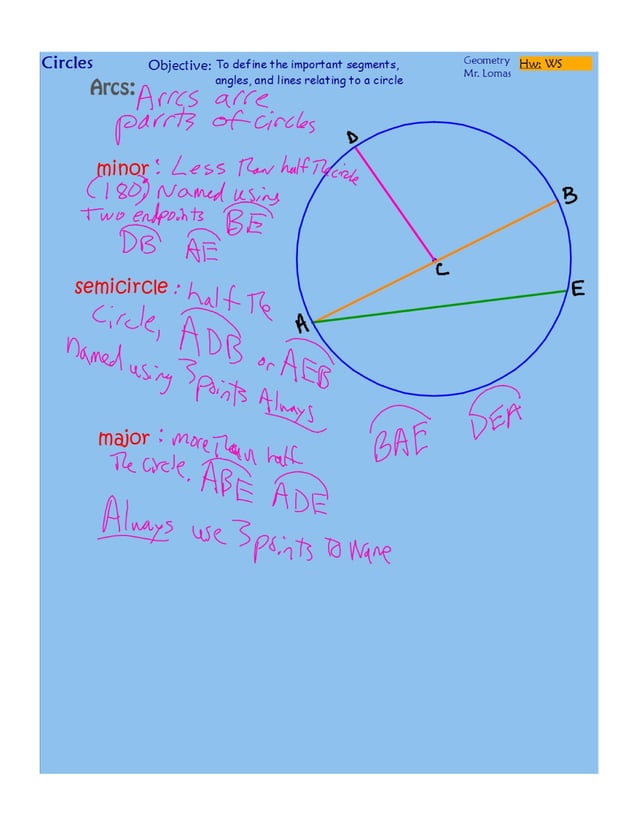 Circles
Objective: To define the important segments,
angles, and lines relating to a circle
Geometry
Mr. Lomas
Hw: WS
Arcs: Arrcs arre
parrts of circles
minor: Less Than half The circle
(180°) Named using
Two endpoints BE
DB AE
semicircle: half The
Circle, ADB or AEB
Named using 3 points Always
major: more Than half
The circle. ABE ADE
BAE DEA
Always use 3 points to Name
D
B
C
E
A